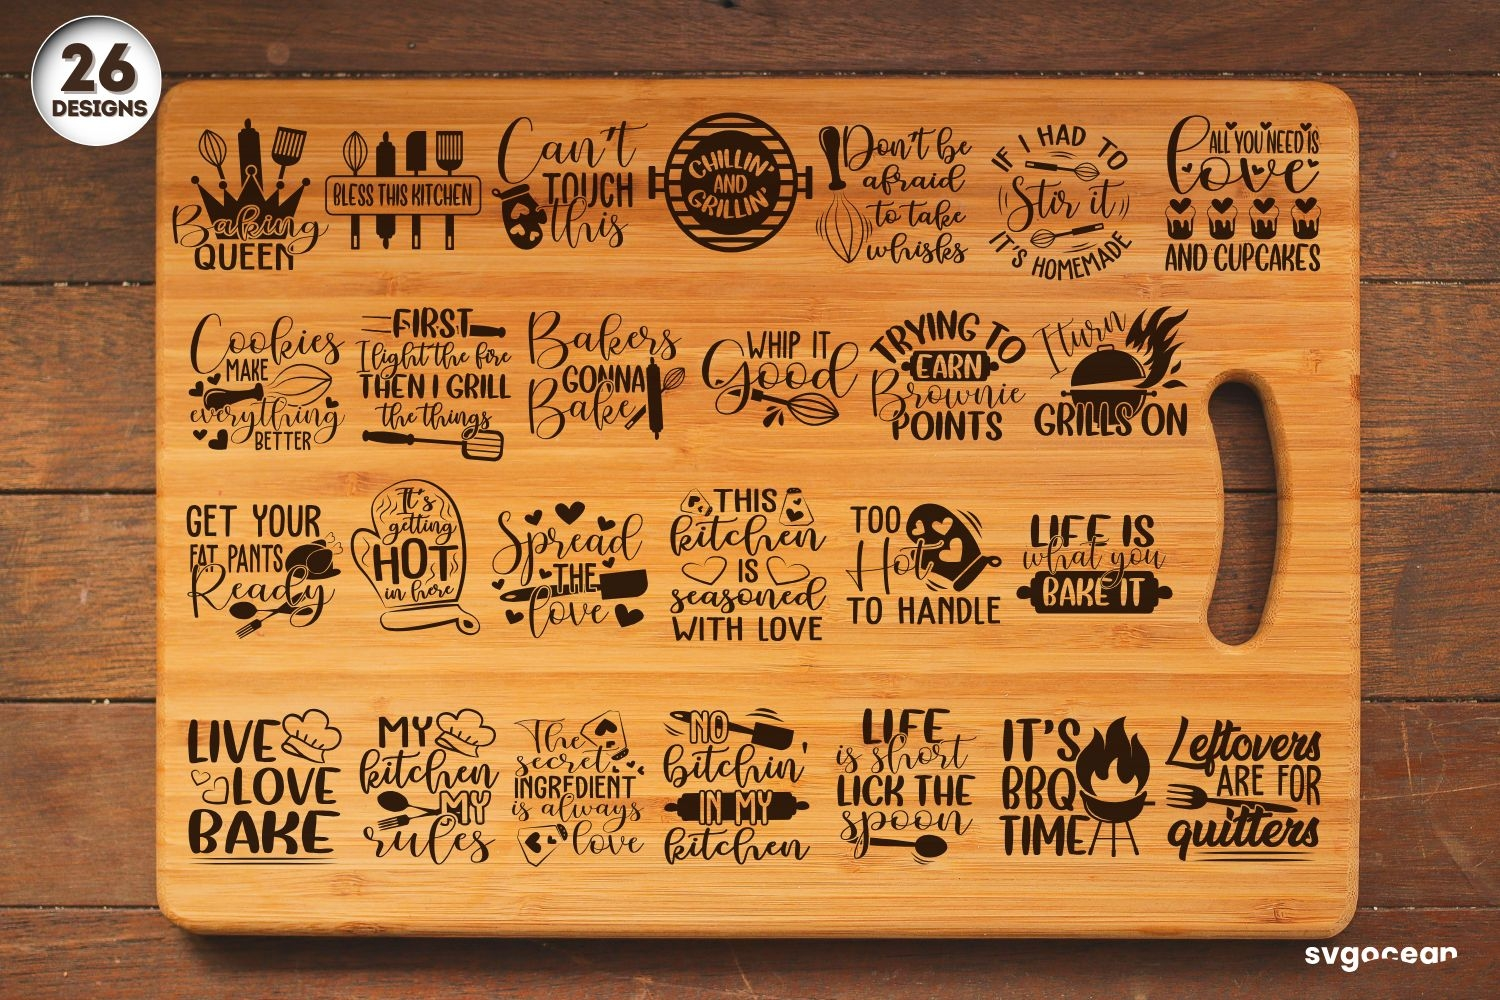 26
DESIGNS
Baking
QUEEN
BLESS THIS KITCHEN
Can't
TOUCH
this
CHILLIN'
AND
GRILLIN'
Don't be
afraid
to take
whisks
IF I HAD TO
Stir it
IT'S HOMEMADE
ALL YOU NEED IS
love
AND CUPCAKES
Cookies
MAKE
everything
BETTER
FIRST
I light the fire
THEN I GRILL
the things
Bakers
GONNA
Bake
WHIP IT
Good
TRYING TO
EARN
Brownie
POINTS
I turn
GRILLS ON
GET YOUR
FAT PANTS
Ready
It's
getting
HOT
in here
Spread
THE
love
THIS
kitchen
IS
seasoned
WITH LOVE
TOO
Hot
TO HANDLE
LIFE IS
what you
BAKE IT
LIVE
LOVE
BAKE
MY
kitchen
MY
rules
The
secret
INGREDIENT
is always
love
NO
bitchin'
IN MY
kitchen
LIFE
is short
LICK THE
spoon
IT'S
BBQ
TIME
Leftovers
ARE FOR
quitters
svgocean